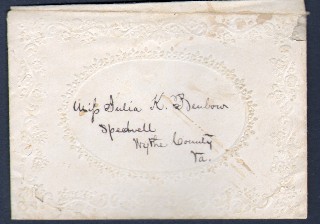 Miss Julia K. Benbow
Speedwell
Wythe County
Va.